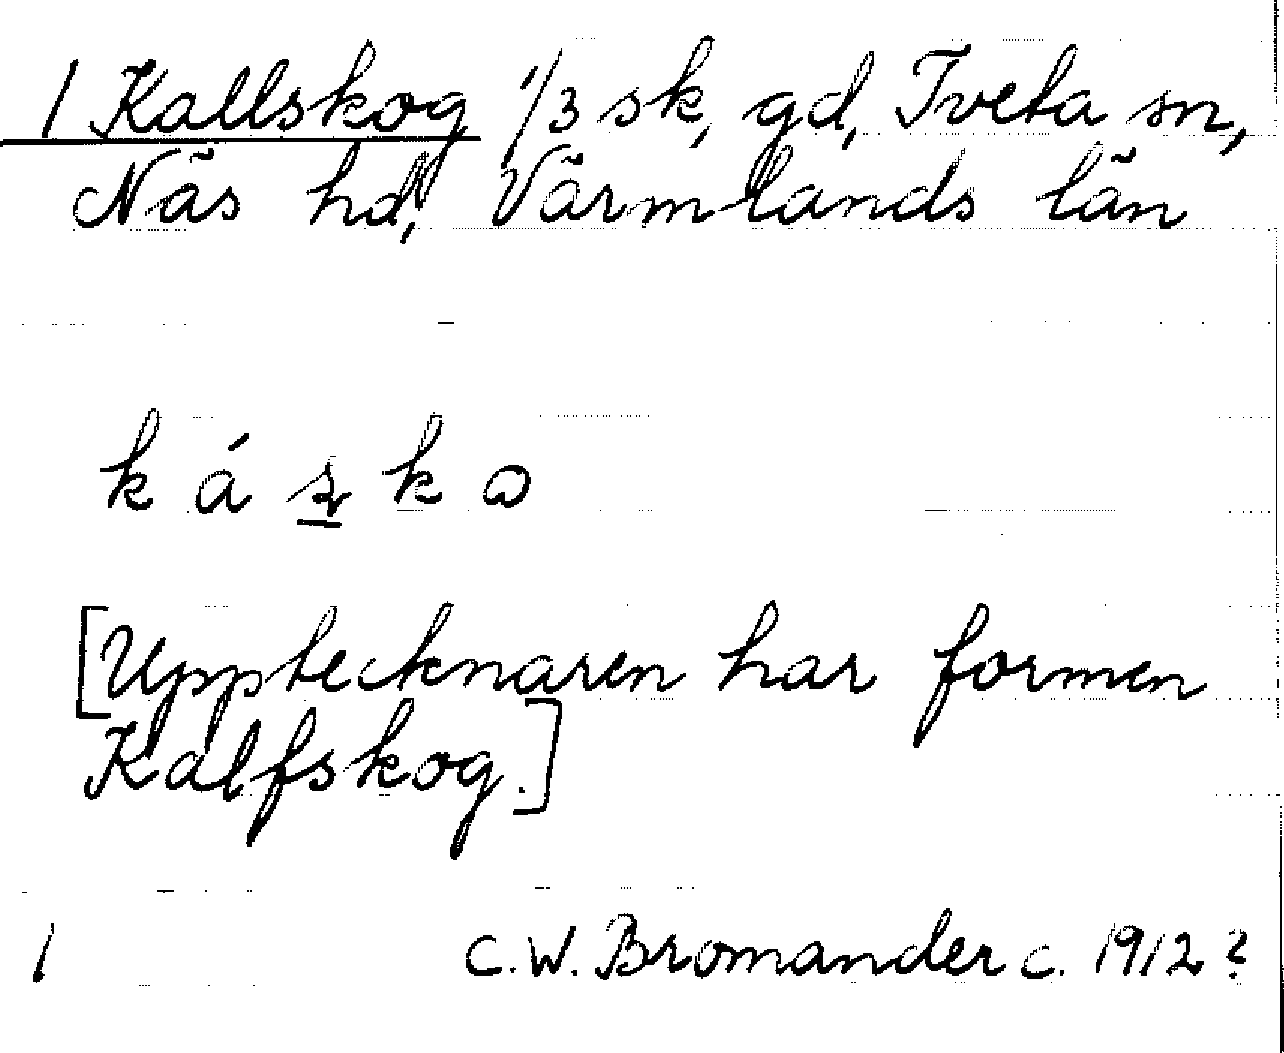 1 Kallskog 1/3 sk, gd, Tveta sn,
Näs hd, Värmlands län
k á s k o
[Upptecknaren har formen
Kalfskog.]
1 C.W. Bromander c. 1912?